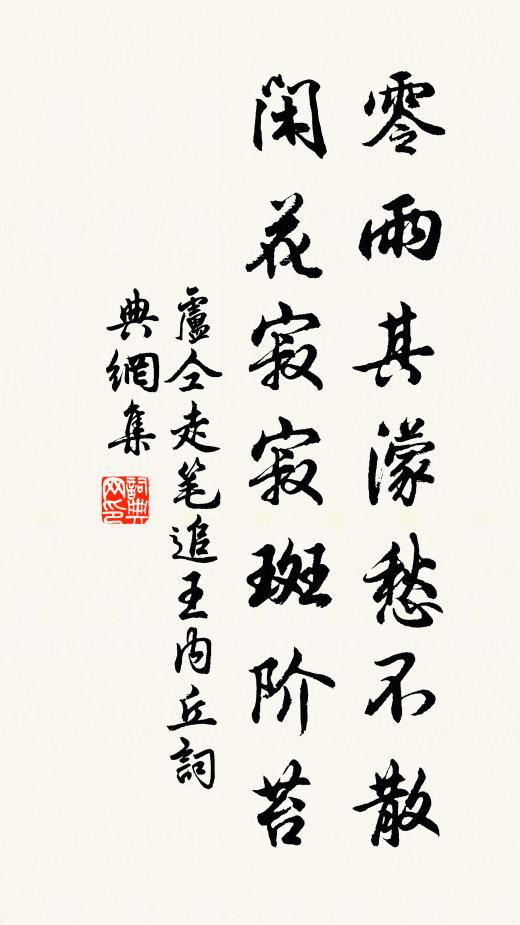 零雨其濛愁不散
闲花寂寂斑阶苔
盧仝走笔追王内丘詞
典網集
詞典网印